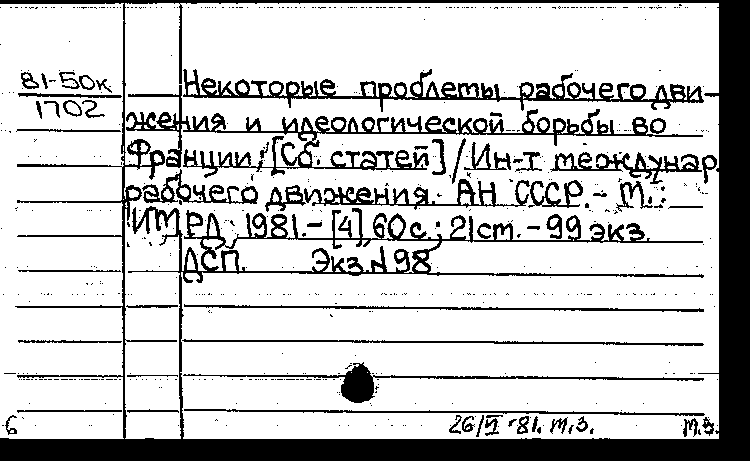 81-50к
1702
Некоторые проблемы рабочего дви-
жения и идеологической борьбы во
Франции, [Сб. статей] / Ин-т междунар.
рабочего движения. АН СССР. - М.:
ИМРД, 1981. - [4], 60 с.; 21 см. - 99 экз.
ДСП. Экз. № 98
6 26/VI-81. т.з. т.з.